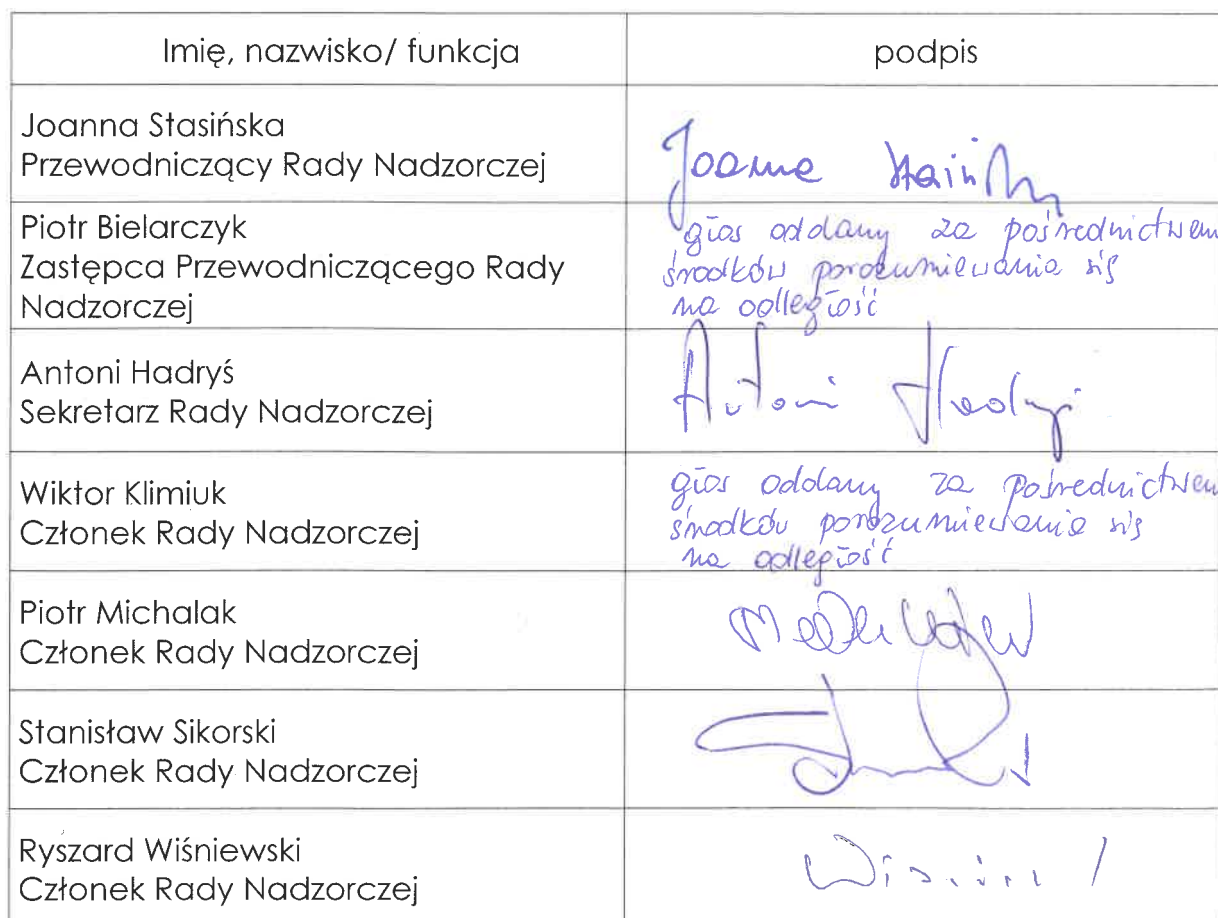 Imię, nazwisko/ funkcja
podpis
Joanna Stasińska
Przewodniczący Rady Nadzorczej
Joanna
Piotr Bielarczyk
Zastępca Przewodniczącego Rady
Nadzorczej
głos oddany za pośrednictwem
środków porozumiewania się
na odległość
Antoni Hadryś
Sekretarz Rady Nadzorczej
Antoni Hadryś
Wiktor Klimiuk
Członek Rady Nadzorczej
głos oddany za pośrednictwem
środków porozumiewania się
na odległość
Piotr Michalak
Członek Rady Nadzorczej
Stanisław Sikorski
Członek Rady Nadzorczej
Ryszard Wiśniewski
Członek Rady Nadzorczej